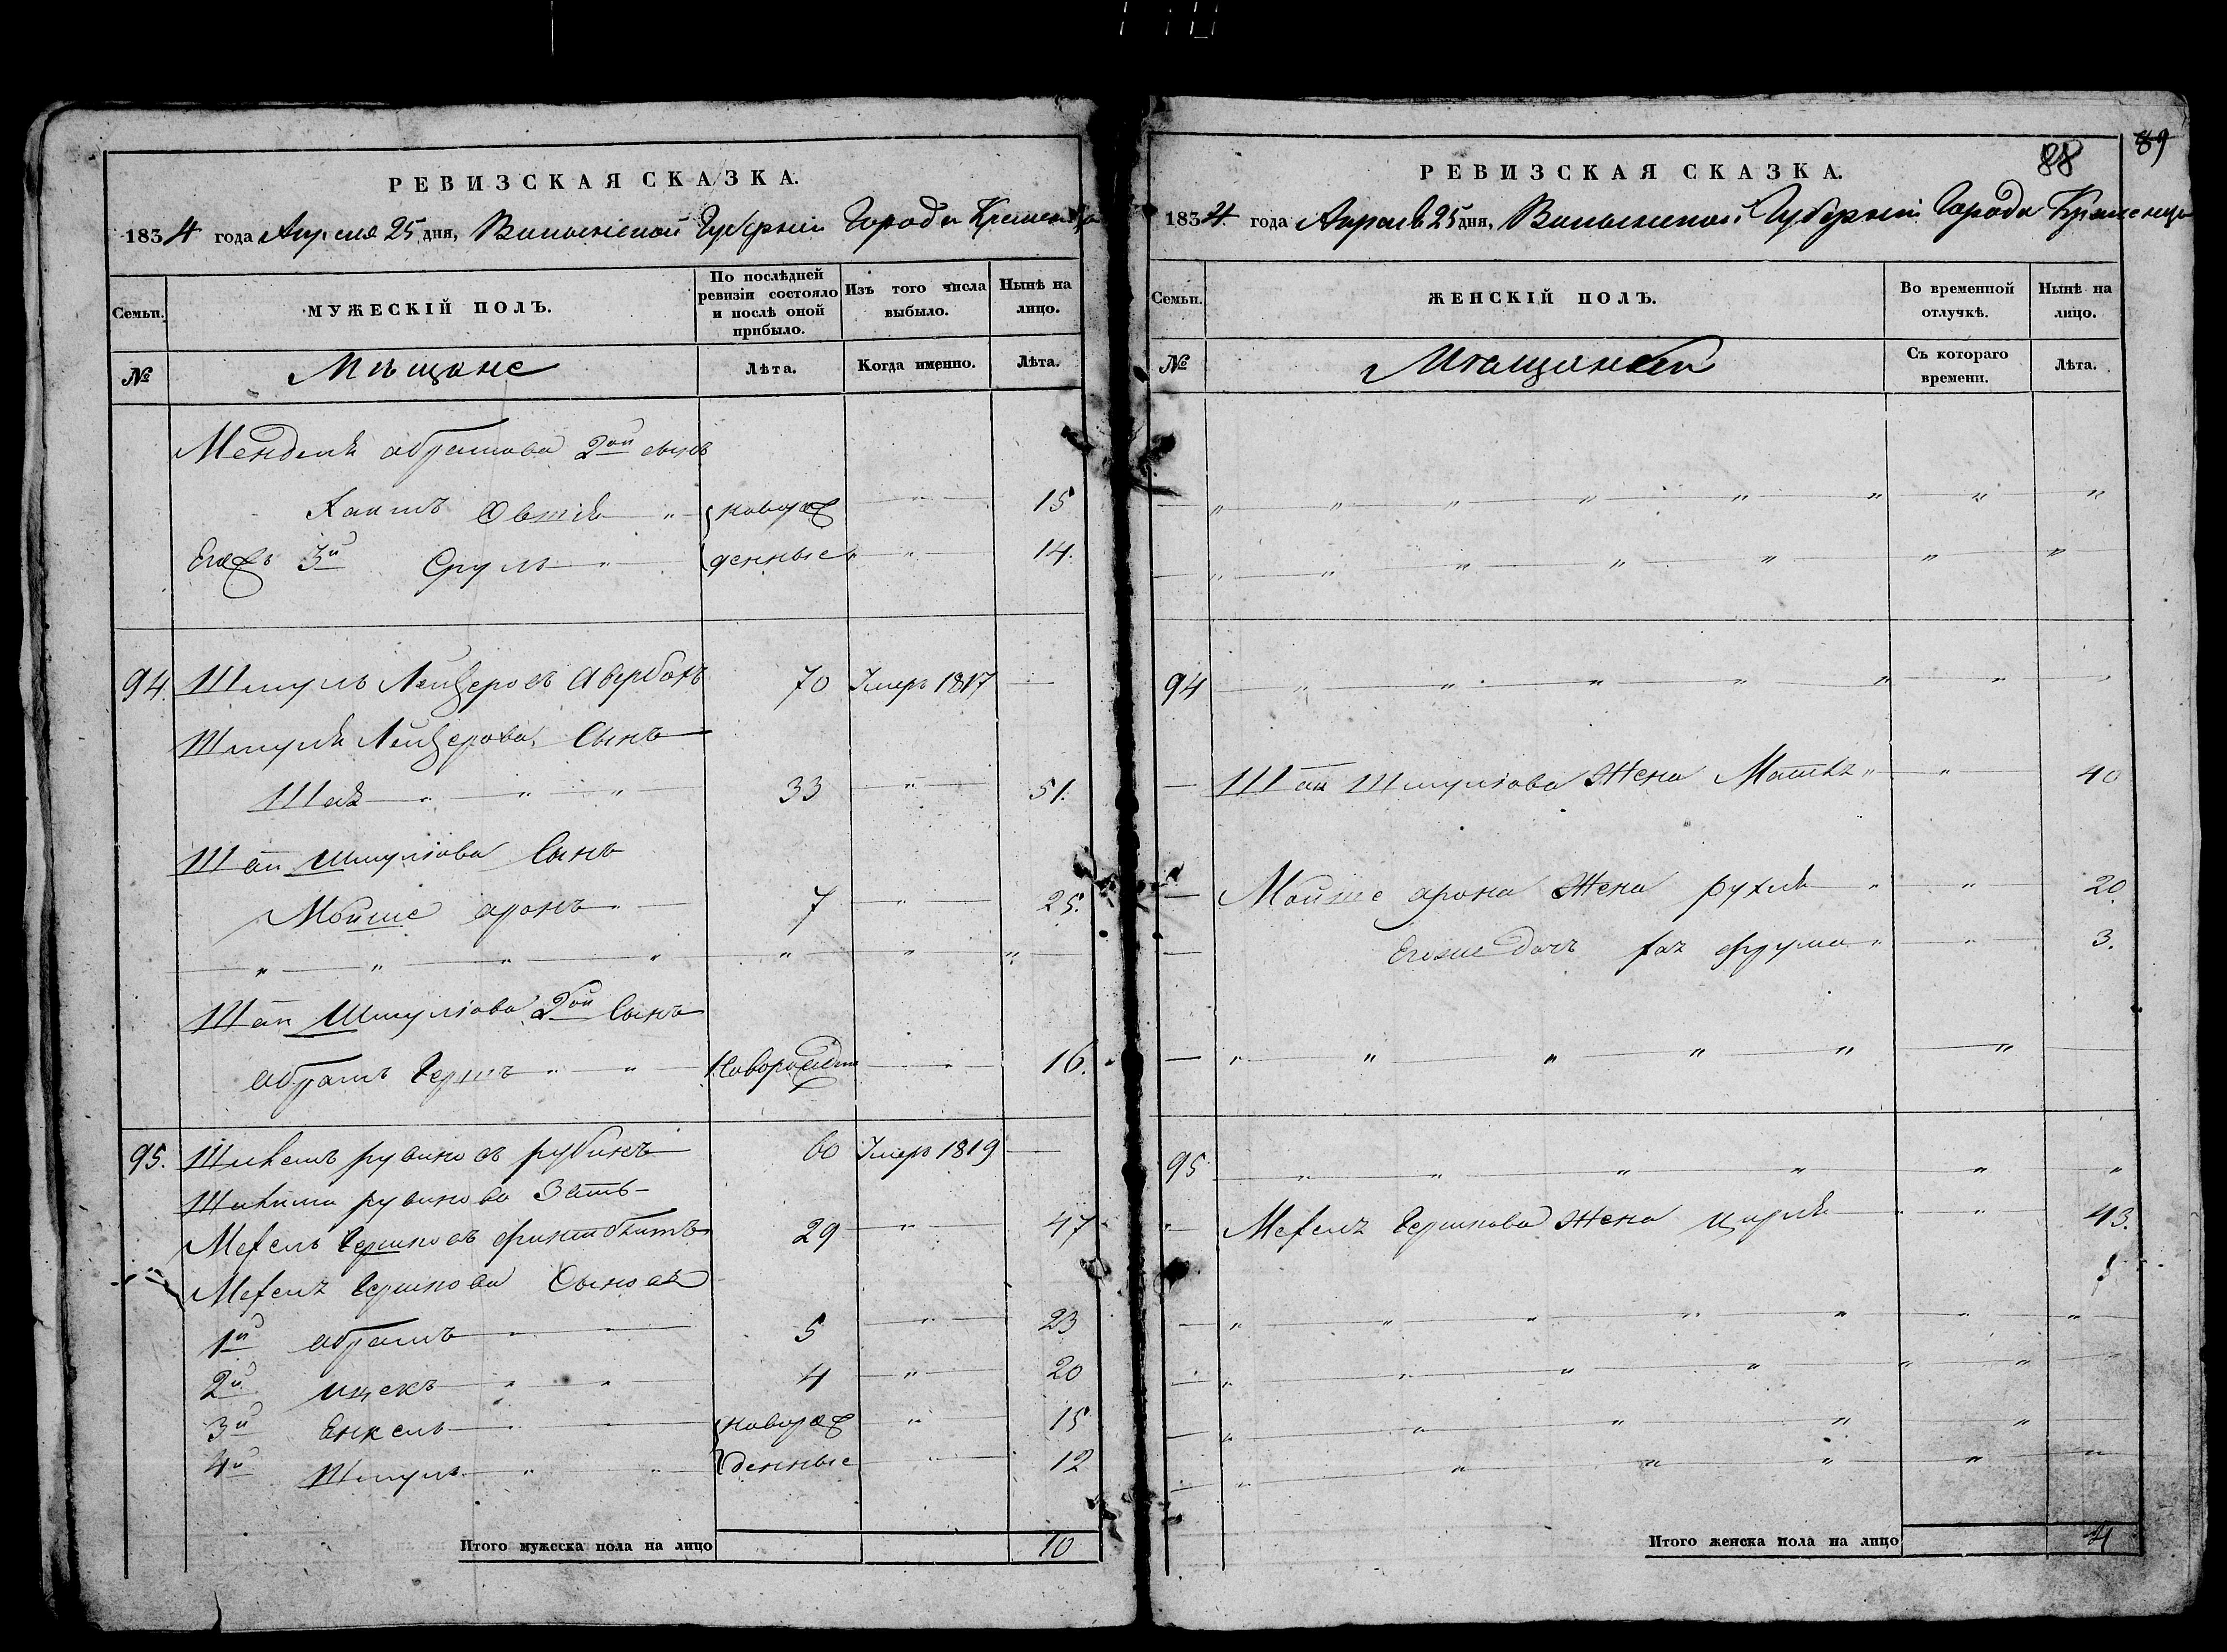 РЕВИЗСКАЯ СКАЗКА.
1834 года Апреля 25 дня, Волынской Губерніи Города Кременца
Семьи.
МУЖЕСКІЙ ПОЛЪ.
По послѣдней ревизіи состояло и послѣ оной прибыло.
Изъ того числа выбыло.
Нынѣ на лицо.
№
Мѣщане
Лѣта.
Когда именно.
Лѣта.
Менделя абрамова 2ой сынъ
Хаимъ Овшія " новорож " 15
Егожъ 3й Сруль " денные " 14.
94. Шмуль Лейзеровъ Авербахъ 70 Умеръ 1817 —
Шмуля Лейзерова Сынъ
Шая " " " 33 " 51.
Шаи Шмулiова Сынъ
Мойше аронъ " 7 " 25.
" " " " " " "
Шаи Шмулiова 2ой Сынъ
абрамъ Гершъ " " Новорожден " 16.
95. рувиновъ рубинъ 60 Умеръ 1819 —
рувинова Зять
Мехель Гершковъ 29 " 47
Мехеля Гершкова Сыновья
1й абрамъ " " 5 " 23
2й ицекъ " " 4 " 20
3й Енкель " " новорож " 15
4й Шмуль " " денные " 12
Итого мужеска пола на лицо 10
89
88
РЕВИЗСКАЯ СКАЗКА.
1834 года Апреля 25 дня, Волынской Губерніи Города Кременца
Семьи.
ЖЕНСКІЙ ПОЛЪ.
Во временной отлучкѣ.
Нынѣ на лицо.
№
Мѣщанки
Съ котораго времени.
Лѣта.
— " " " " " " " "
— " " " " " " "
94 " " " " " " "
— Шаи Шмулiова Жена " " 40
— Мойше арона Жена рухля " " 20
— Егоже дочь фрума " " 3.
— " " " " " "
95 " " " " " "
" Мехеля Гершкова Жена цирля " " 43.
— " " " " " " "
— " " " " " "
— " " " " "
— " " " " " "
Итого женска пола на лицо 4